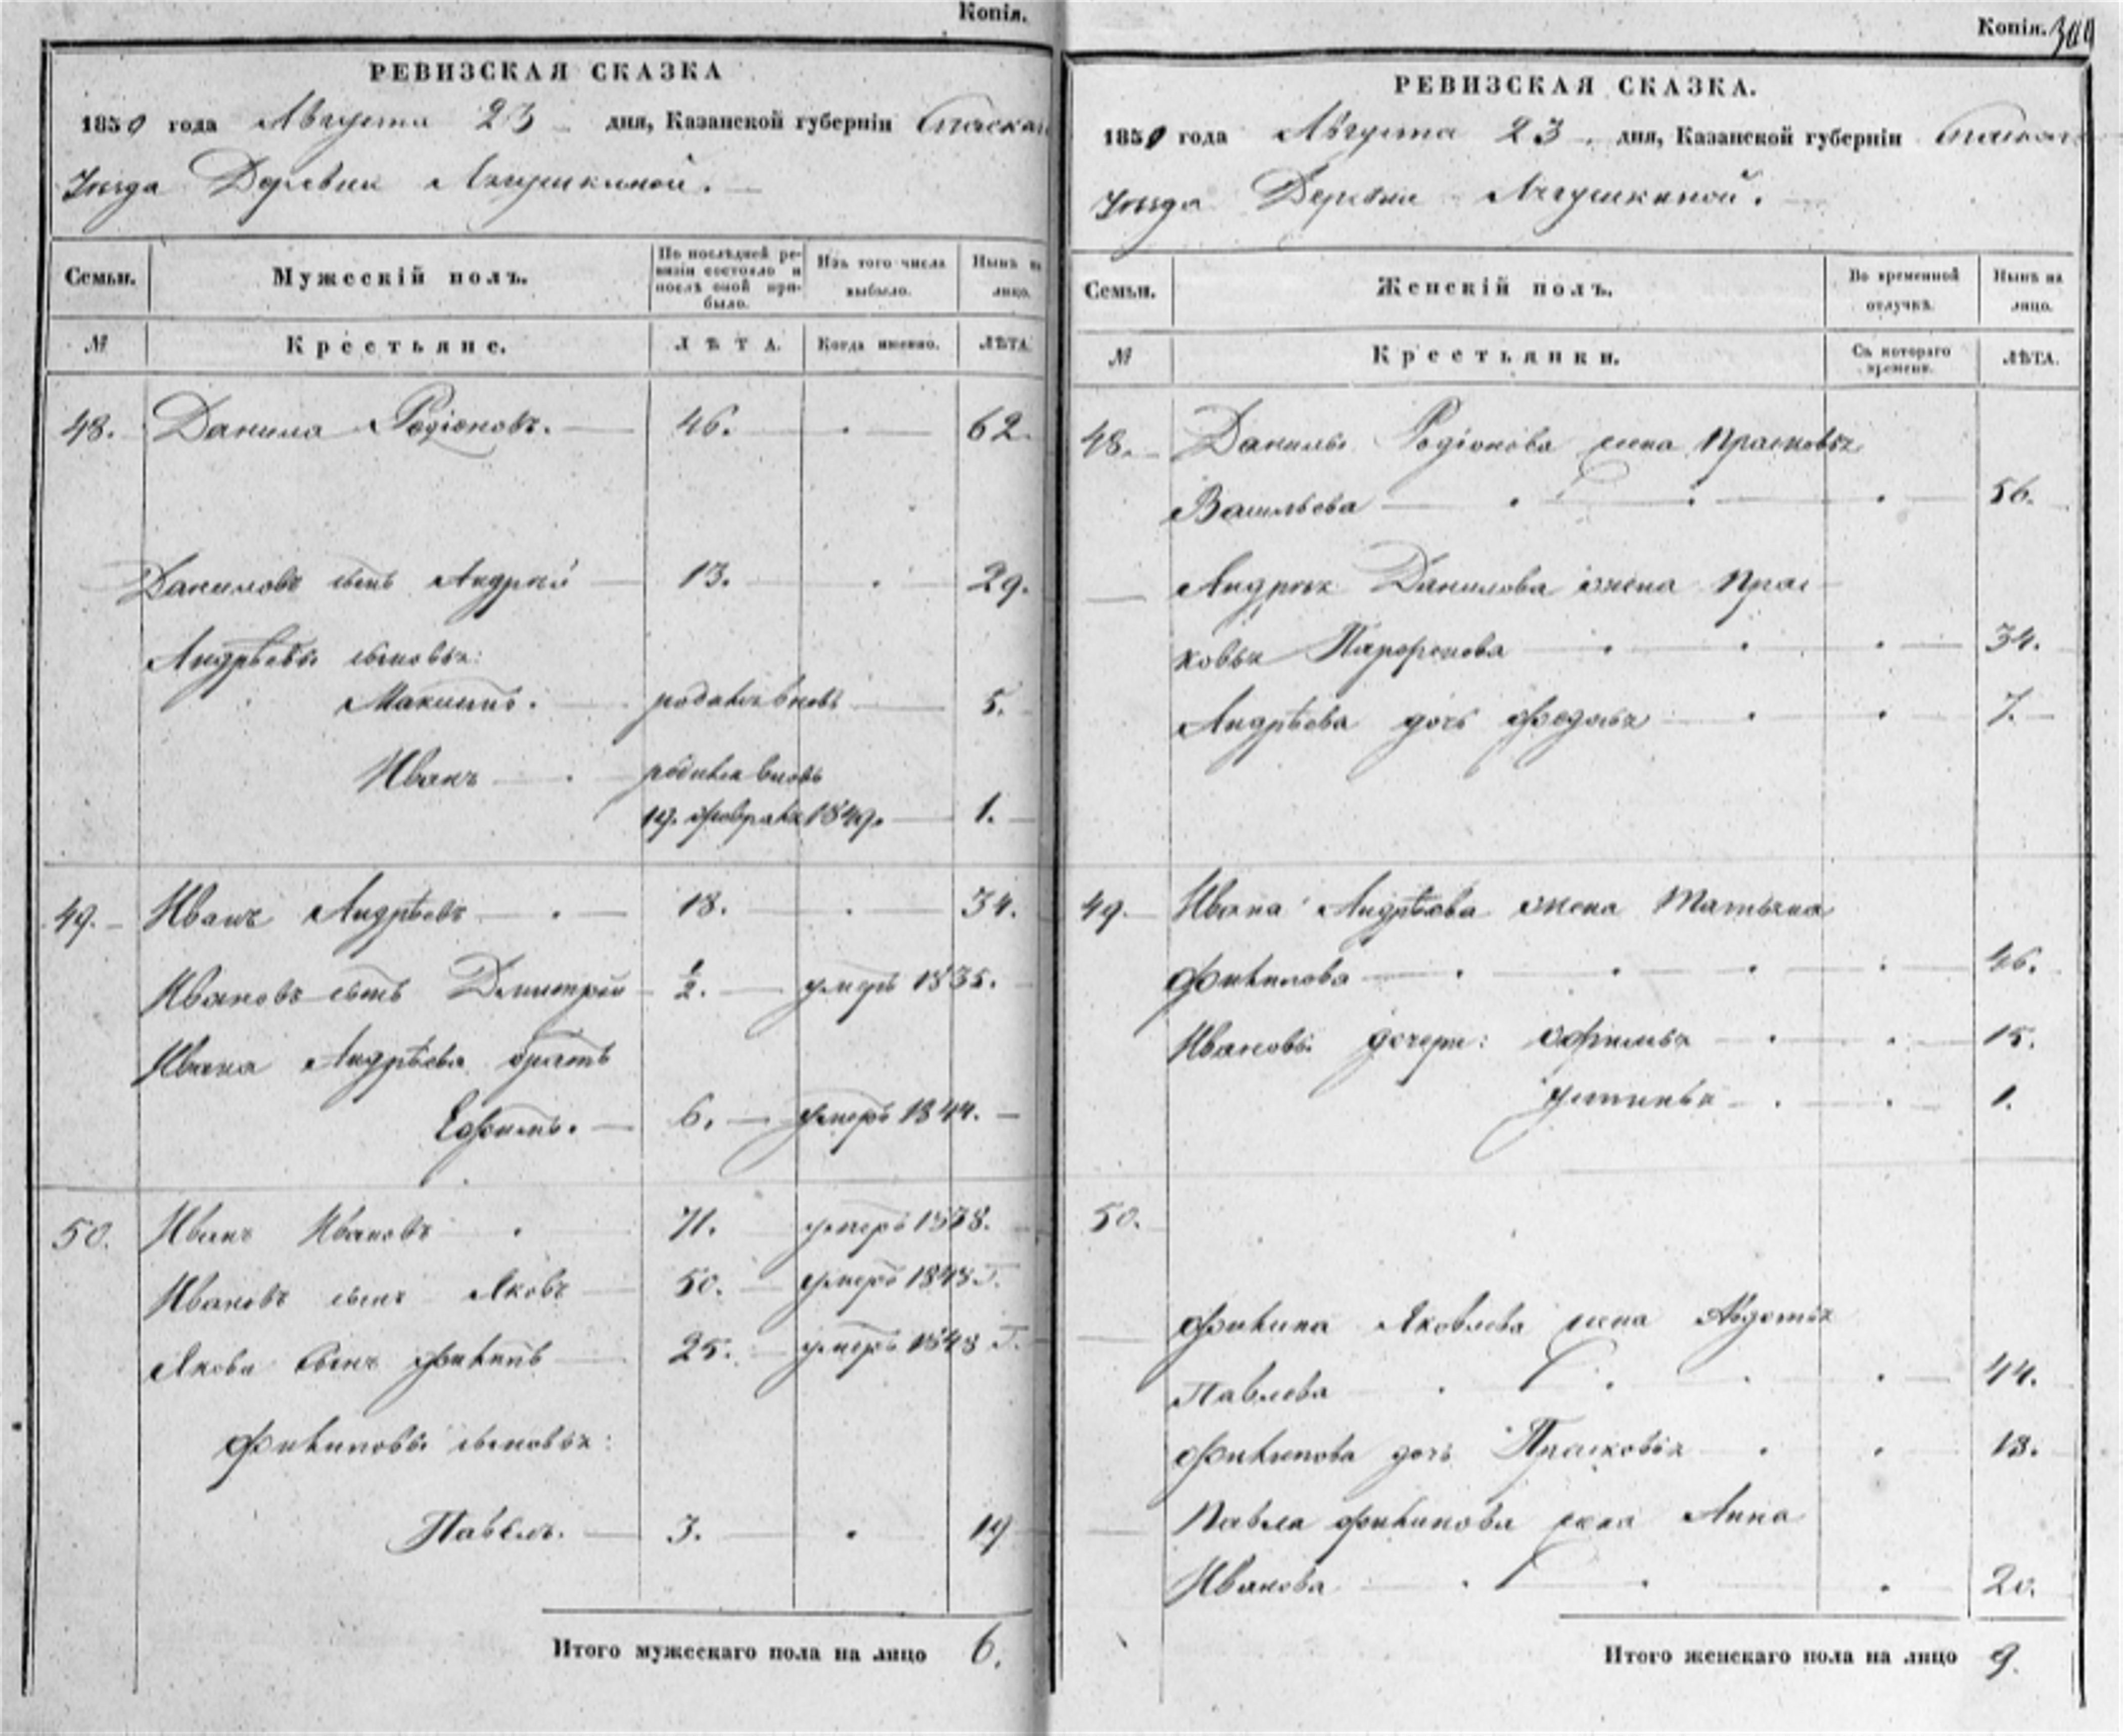 Копія.
РЕВИЗСКАЯ СКАЗКА
1850 года Августа 23 дня, Казанской губерніи Спаскаго
Уѣзда Деревни
Семьи. Мужескій полъ. По послѣдней ревизіи состояло и послѣ оной прибыло. Изъ того числа выбыло. Нынѣ на лицо.
№ Крестьяне. ЛѢТА. Когда именно. ЛѢТА.
48. Данила Родіоновъ. 46. 62.
Даниловъ сынъ Андрей 13. 29.
Андрѣевы сыновья:
Максимъ. родился вновь 5.
Иванъ родился вновь
19. февраля 1849. 1.
49. Иванъ Андрѣевъ 18. 34.
Ивановъ сынъ Дмитрей 1/2. умеръ 1835.
Ивана Андрѣева братъ
Ефимъ. 6. умеръ 1844.
50. Иванъ Ивановъ 71. умеръ 1838.
Ивановъ сынъ Яковъ 50. умеръ 1848 Г.
Якова сынъ Филипъ 25. умеръ 1848 Г.
Филиповы сыновья:
Павелъ. 3. 19
Итого мужескаго пола на лицо 6.
Копія.
РЕВИЗСКАЯ СКАЗКА.
1850 года Августа 23 дня, Казанской губерніи Спаскаго
Уѣзда Деревни
Семьи. Женскій полъ. Во временной отлучкѣ. Нынѣ на лицо.
№ Крестьянки. Съ котораго времени. ЛѢТА.
48. Данилы Родіонова жена Прасковья
Васильева 56.
Андрея Данилова жена Прас-
ковья Парфенова 34.
Андрѣева дочь Федосья 7.
49. Ивана Андрѣева жена Татьяна
Филипова 46.
Ивановы дочери: Офимья 15.
Устинья 1.
50.
Филипа Яковлева жена Авдотья
Павлова 44.
Филипова дочь Прасковья 18.
Павла Филипова жена Анна
Иванова 20.
Итого женскаго пола на лицо 9.